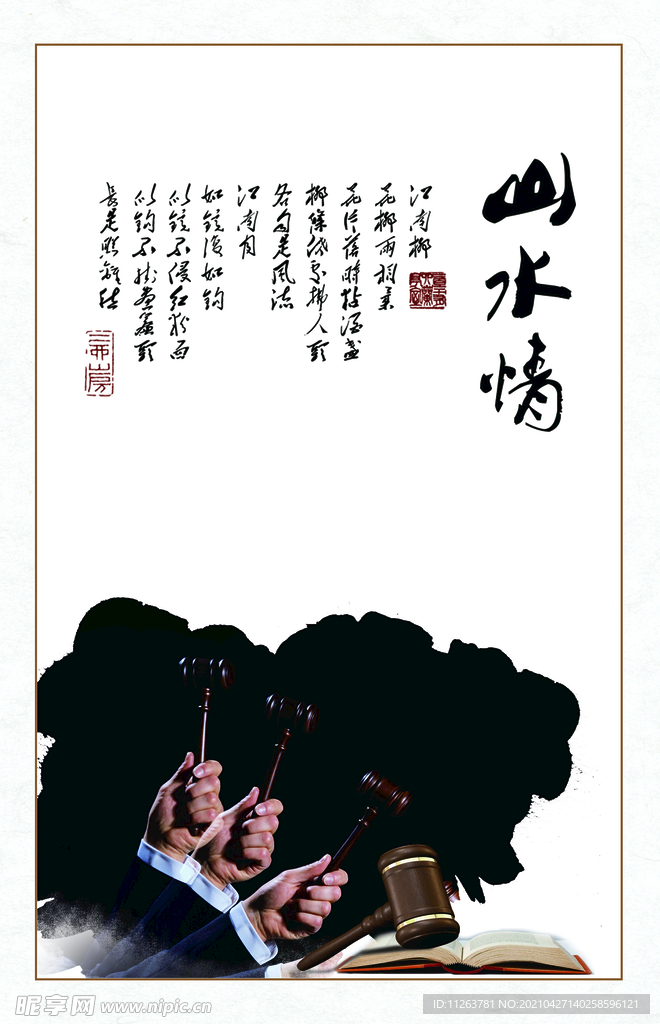 山水情
江南柳
花柳兩相柔
花片落時粘酒盞
柳條低處拂人頭
各自是風流
江南月
如鏡復如鉤
似鏡不侵紅粉面
似鉤不掛畫簾頭
長是照離愁
昵享网 www.nipic.cn
ID:11263781 NO:20210427140258596121